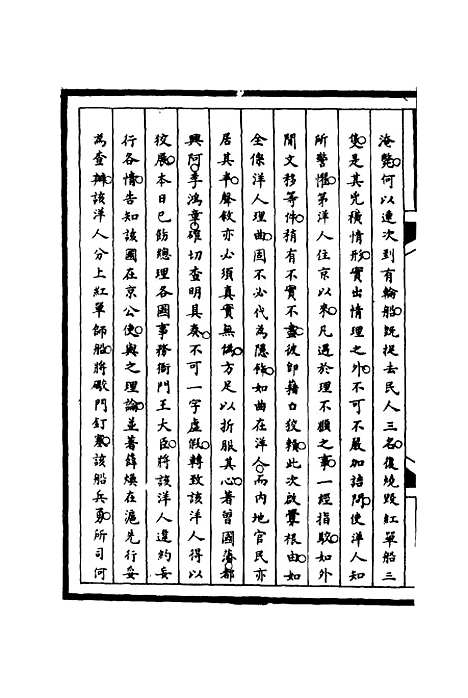 淹斃何以連次到有輪船旣捉去民人三名復燒毀紅單船三
隻是其兇橫情形實出情理之外不可不嚴加詰問使洋人知
所警懼第洋人住京以來凡遇於理不順之事一經指駁如外
閒文移等件稍有不實不盡彼卽藉口狡賴此次啟釁根由如
全係洋人理曲固不必代為隱飾如曲在洋人而內地官民亦
居其半聲敘亦必須真實無僞方足以折服其心著曾國藩都
興阿李鴻章確切查明具奏不可一字虛假轉致該洋人得以
狡展本日已飭總理各國事務衙門王大臣將該洋人違約妄
行各情告知該國在京公使與之理論並著薛煥在滬先行妥
為查辦該洋人分上紅單師船將礮門釘塞該船兵勇所司何